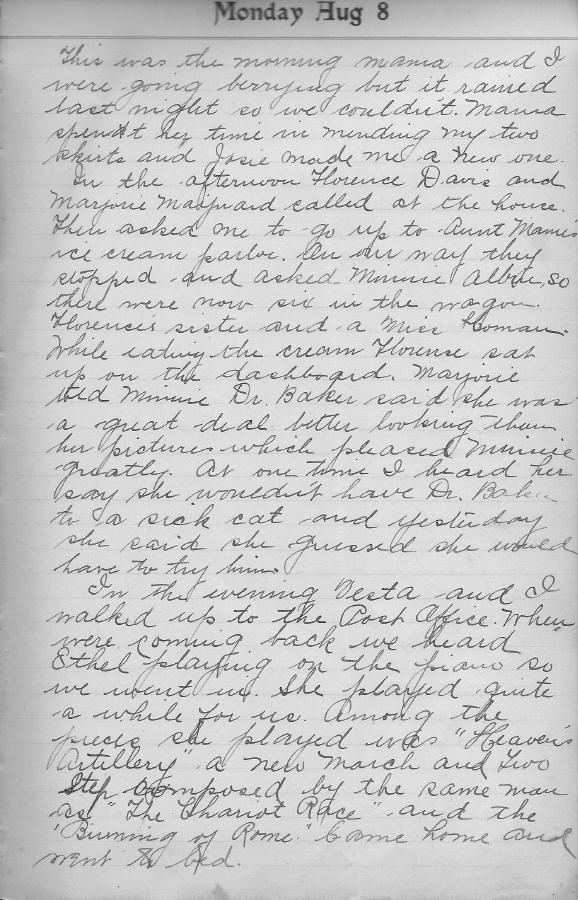 Monday Aug 8
This was the morning mama and I
were going berrying but it rained
last night so we couldn't. Mama
spent her time in mending my two
skirts and Josie made me a new one.
In the afternoon Florence Davis and
Marjorie Maynard called at the house.
Then asked me to go up to Aunt Mames
ice cream parlor. On our way they
stopped and asked Minnie Albee, so
there were now six in the wagon.
Florence's sister and a Miss Homan.
While eating the cream Florence sat
up on the dashboard. Marjorie
told Minnie Dr. Baker said she was
a great deal better looking than
her pictures which pleased Minnie
greatly. At one time I heard her
say she wouldn't have Dr. Baker
to a sick cat and yesterday
she said she guessed she would
have to try him.
In the evening Vesta and I
walked up to the Post Office. When
were coming back we heard
Ethel playing on the piano so
we went in. She played quite
a while for us. Among the
pieces she played was "Heaven's
Artillery" a new March and Two
Step composed by the same man
as "The Chariot Race" and the
"Burning of Rome." Came home and
went to bed.